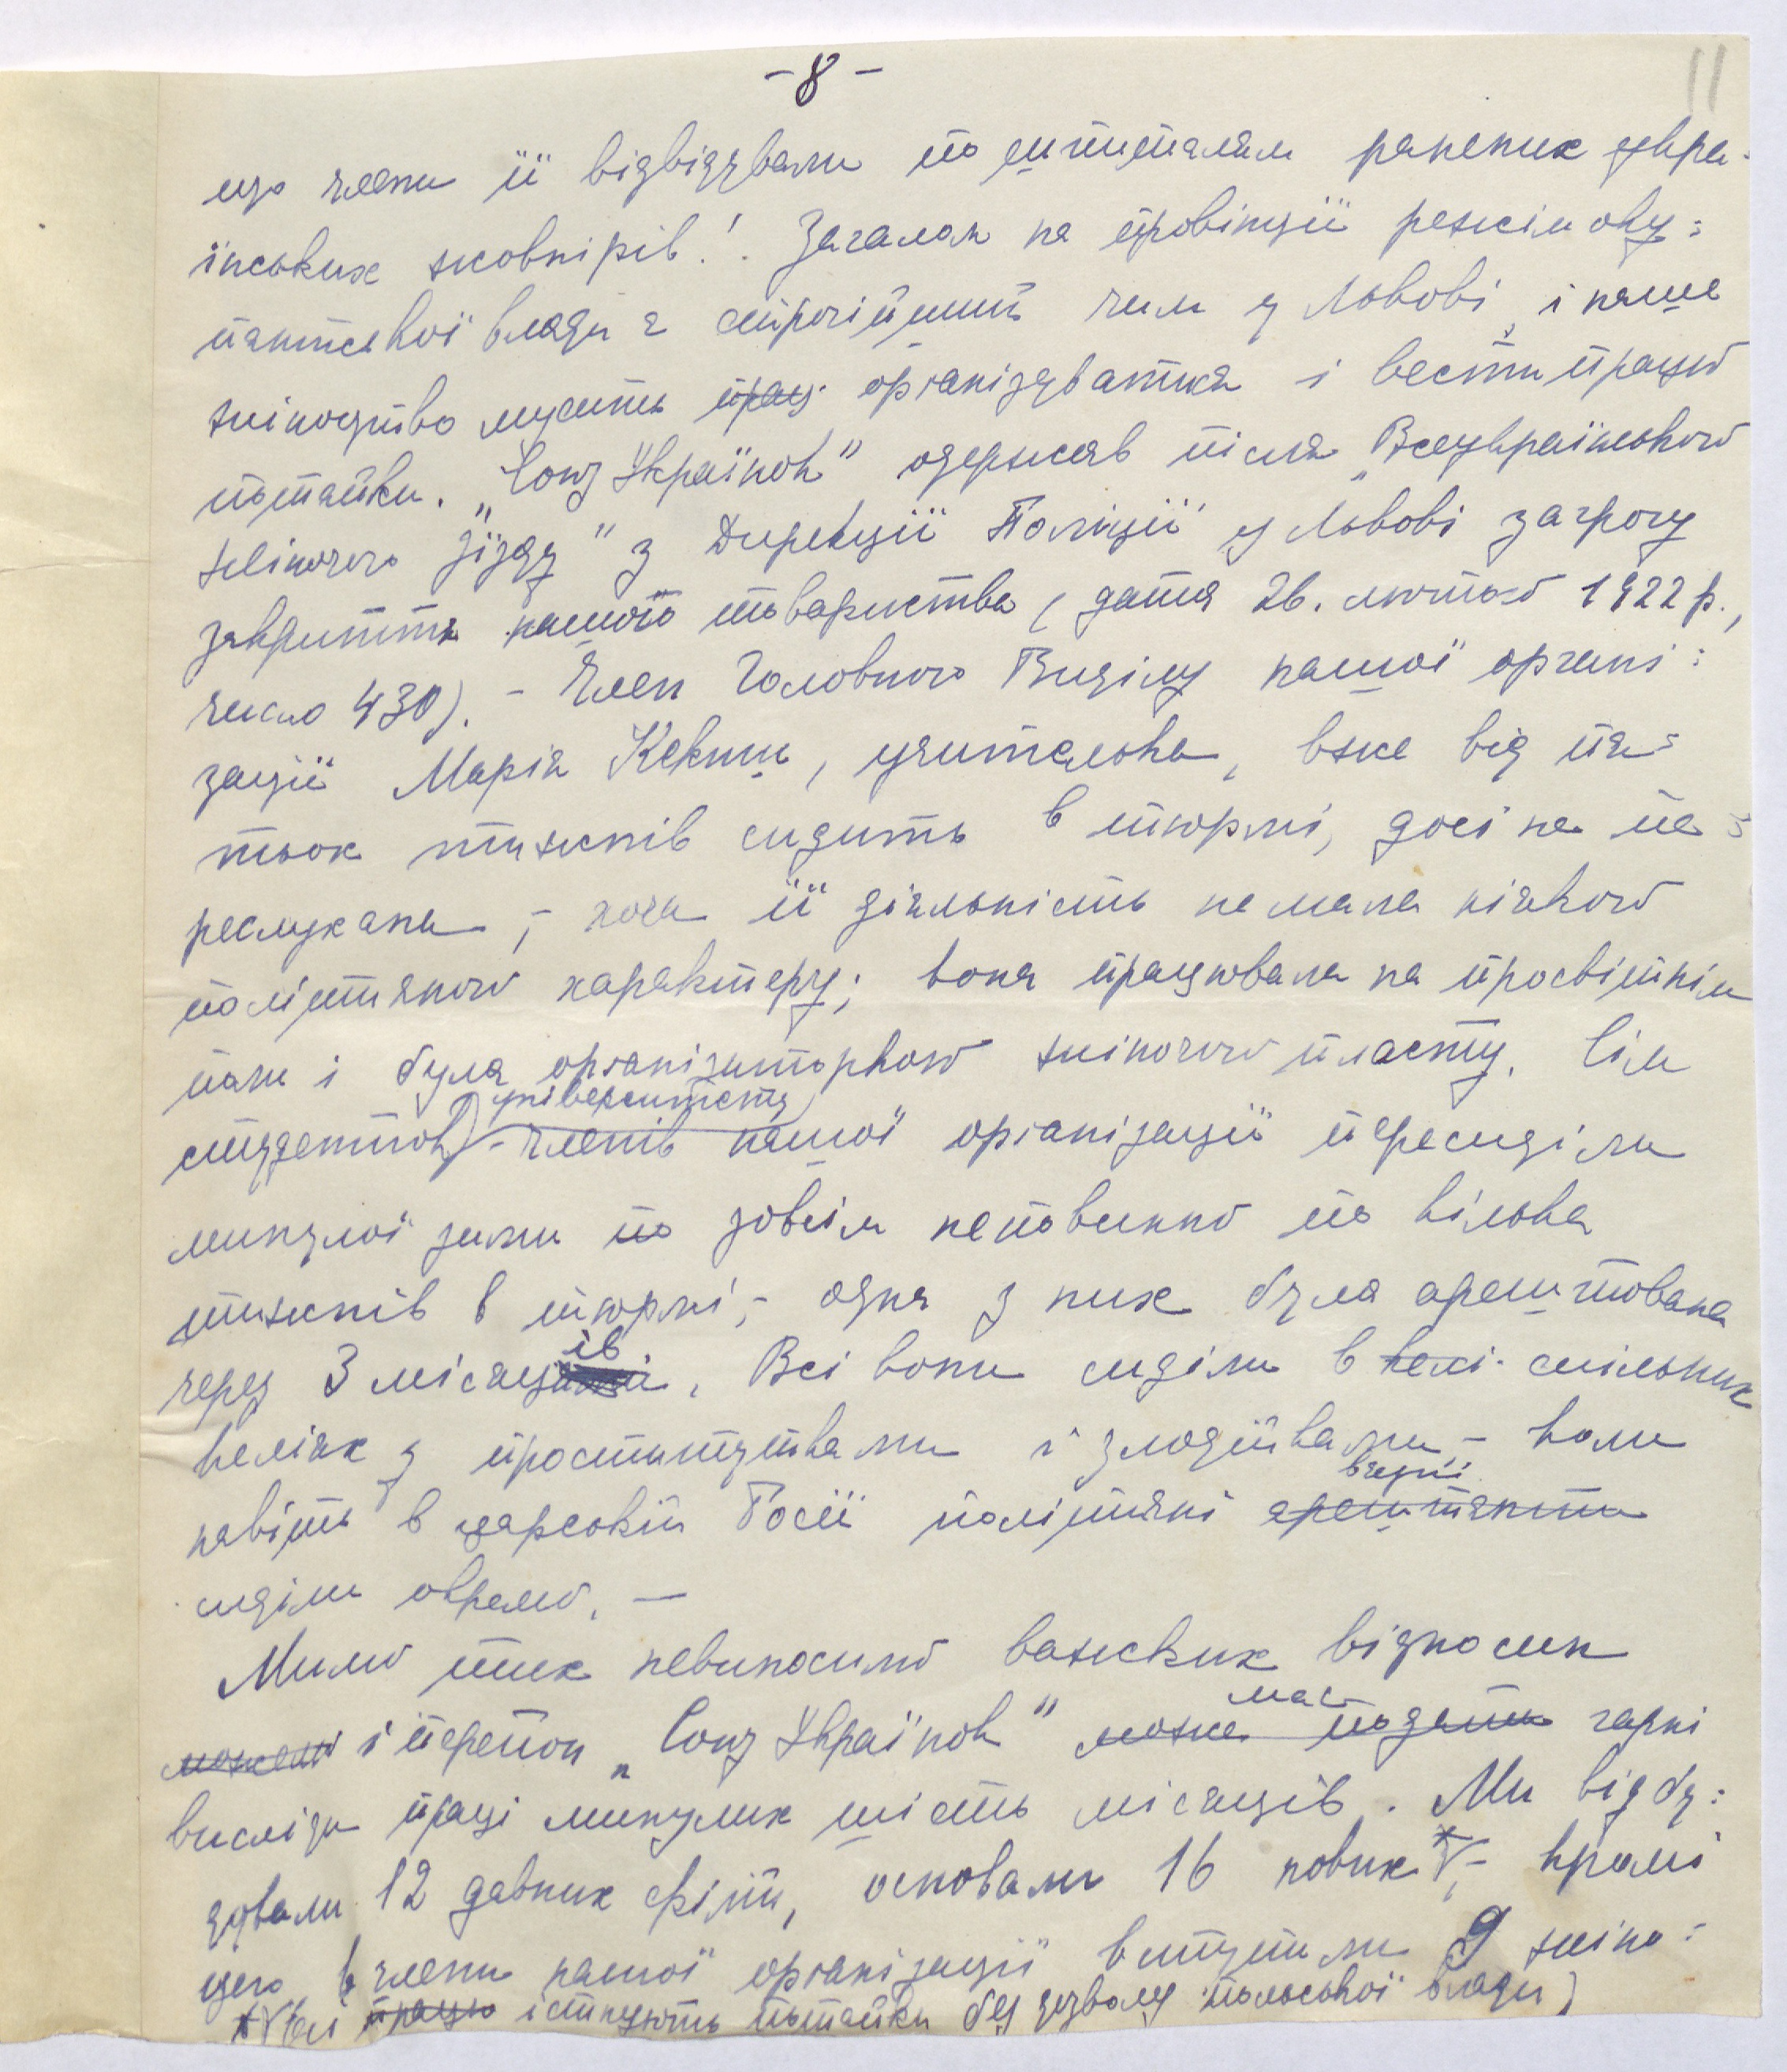 - 8 -
11
що члени її відвідували по шпиталям ранених укра-
їнських жовнірів! Загалом на провінції режім оку=
пантської влади є строгійший чим у Львові і наше
жіноцтво мусить прац. організуватися і вести працю
потайки. „Союз Українок" одержав після „Всеукраїнського
жіночого Зїзду" з Дирекції Поліції у Львові загрозу
закриття нашого товариства (дата 26. лютого 1922 р.,
число 430). - Член Головного Виділу нашої органі=
зації Марія Кекиш, учителька, вже від пя=
тьох тижнів сидить в тюрмі, досі не пе=
реслухана, - хоча її діяльність не мала ніякого
політичного характеру; вона працювала на просвітнім
поли і була організаторкою жіночого пласту. Сім
університету
студенток - членів нашої організації пересиділи
минулої зими по зовсім неповинно по кілька
тижнів в тюрмі, - одна з них була арештована
ів
через 3 місяці. Всі вони сиділи в келі спільних
келіях з проститутками і злодійками - коли
вязні
навіть в царській Росії політичні арештанти
сиділи окремо. —
Мимо тих невиносимо важких відносин
має
можемо і перепон „Союз Українок" може подати гарні
висліди праці минулих шість місяців. Ми відбу=
дували 12 давних філій, основали 16 нових *V, - крамі
цего в члени нашої організації вступили 9 жіно=
*V (всі працю істнують потайки без дозволу польської влади)